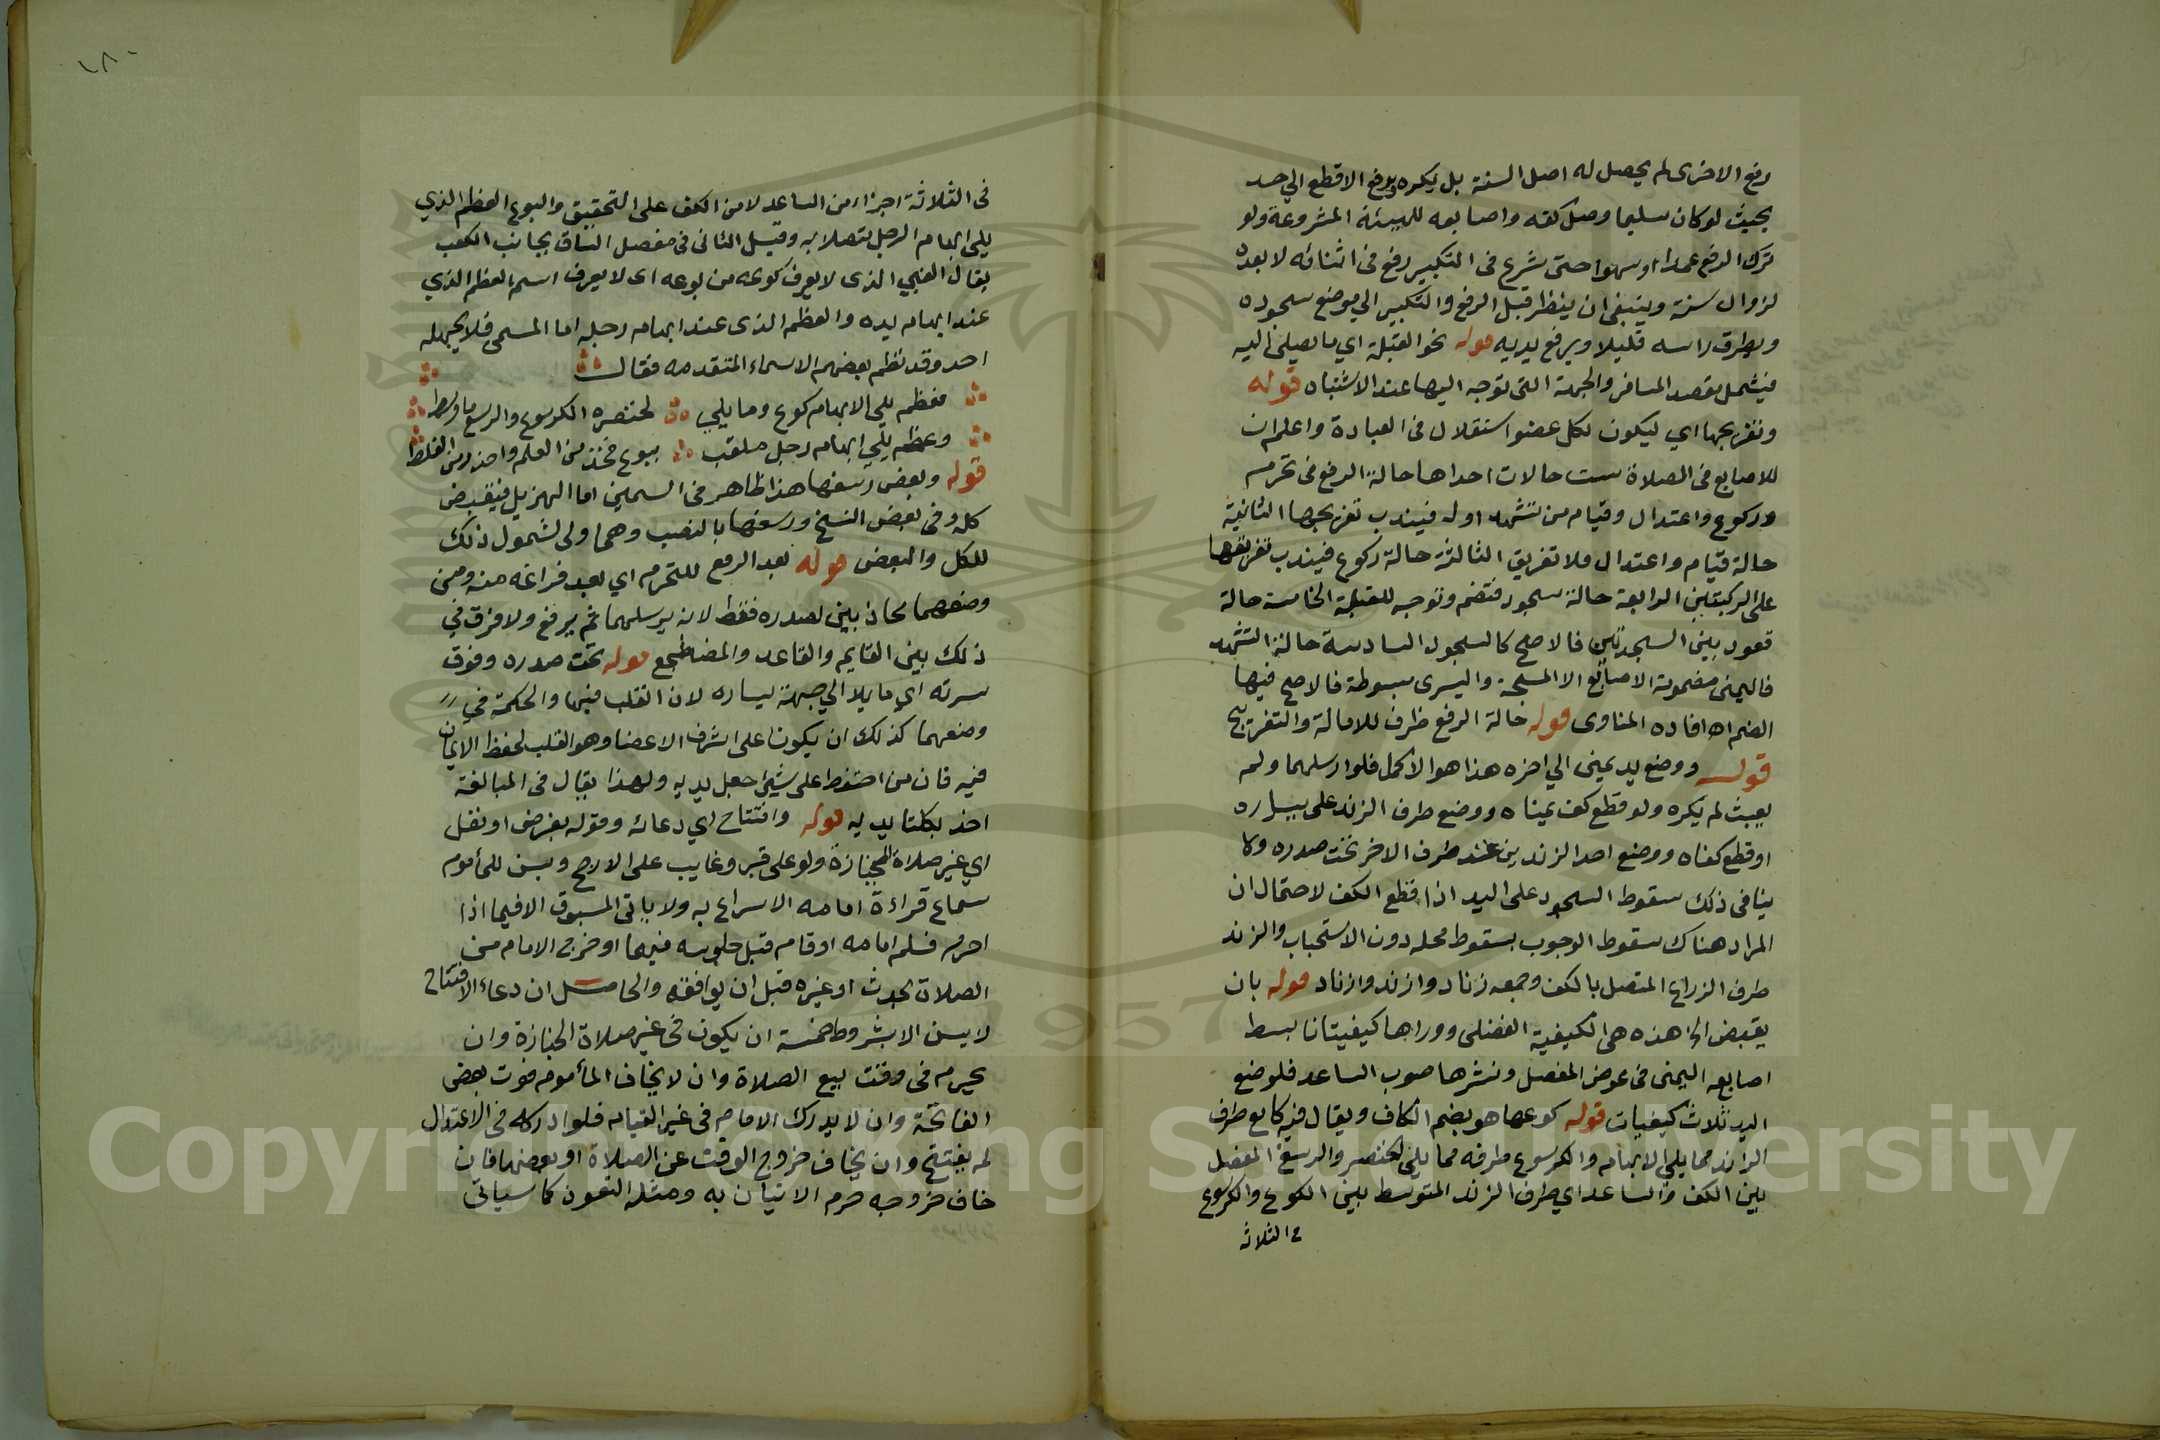 رفع الاخرى لم يحصل له اصل السنة بل يكره ويرفع الاقطع الي حد
بحيث لو كان سليما وصل كفه واصابعه للهيئة المشروعة ولو
ترك الرفع عمدا او سهوا حتى شرع فى التكبير رفع فى اثنائه لا بعده
لزوال سنة وينبغى ان ينظر قبل الرفع والتكبير الي موضع سجوده
ويطرق راسه قليلا ويرفع يديه قوله نحو القبلة اي ما يصلى اليه
فيشمل مقصد المسافر والجهة التى توجه اليها عند الاشتباه قوله
وتفريجها اي ليكون لكل عضو استقلال فى العبادة واعلم ان
للاصابع فى الصلاة ست حالات احداها حالة الرفع فى تحرم
وركوع واعتدال وقيام من تشهد اول فيندب تفريجها الثانية
حالة قيام واعتدال فلا تفريق الثالثة حالة ركوع فيندب تفريقها
على الركبتين الرابعة حالة سجود فتضم وتوجه للقبلة الخامسة حالة
قعود بين السجدتين فالاصح كالسجود السادسة حالة التشهد
فاليمنى مضمومة الاصابع الا المسبحة واليسرى مبسوطة فالاصح فيها
الضم اه افاده المناوى قوله حالة الرفع ظرف للامالة والتفريج
قوله ووضع يد يمنى الي اخره هذا هو الاكمل فلو ارسلهما ولم
يعبث لم يكره ولو قطع كف يمناه ووضع طرف الزند على يساره
او قطع كفاه ووضع احد الزندين عند طرف الاخر تحت صدره ولا
ينافى ذلك سقوط السجود على اليد اذا قطع الكف لاحتمال ان
المراد هناك سقوط الوجوب بسقوط محله دون الاستحباب والزند
طرف الزراع المتصل بالكف وجمعه زناد وازند وازناد قوله بان
يقبض الخ هذه هى الكيفية الفضلى ووراها كيفيتان بسط
اصابعه اليمنى فى عرض المفصل ونشرها صوب الساعد فلوضع
اليد ثلاث كيفيات قوله كوعها هو بضم الكاف ويقال فيه كاع طرف
الزند مما يلي الابهام والكرسوع طرفه مما يلي الخنصر والرسغ المفصل
بين الكف والساعد اي طرف الزند المتوسط بين الكوع والكرسوع
الثلاثه
١٨٠
فى الثلاثة اجزاء من الساعد لا من الكف على التحقيق والبوع العظم الذي
يلي ابهام الرجل متصلا به وقيل الثانى فى مفصل الساق بجانب الكعب
يقال الغبي الذى لا يعرف كوعه من بوعه اى لا يعرف اسم العظم الذي
عند ابهام يده والعظم الذى عند ابهام رجله اما المسمى فلا يجهله
احد وقد نظم بعضهم الاسماء المتقدمه فقال
فعظم يلي الابهام كوع وما يلي لخنصره الكرسوع والرسغ ما وسط
وعظم يلي ابهام رجل ملقب ببوع فخذ من العلم واحذر من الغلط
قوله وبعض رسغها هذا ظاهر فى السمين اما الهزيل فيقبض
كله وفى بعض النسخ ورسغها بالنصب وهى اولى لشمول ذلك
للكل والبعض قوله بعد الرفع للتحرم اي بعد فراغه منه ومن
وضعهما محاذيين لصدره فقط لانه يرسلهما ثم يرفع ولا فرق في
ذلك بين القايم والقاعد والمضطجع قوله تحت صدره وفوق
سرته اي مايلا الي جهة يساره لان القلب فيها والحكمة في
وضعهما كذلك ان يكونا على اشرف الاعضا وهو القلب لحفظ الايمان
فيه فان من احتفظ على شيئ جعل يديه ولهذا يقال فى المبالغة
اخذ بكلتا يديه قوله وافتتاح اي دعائه وقوله بفرض او نفل
اي غير صلاة الجنازة ولو على قبر وغايب على الارجح ويسن للمأموم
سماع قراءة امامه الاسراع به ولا ياتى المسبوق الا فيما اذا
احرم فسلم امامه او قام قبل جلوسه فيهما او خرج الامام من
الصلاة بحدث او غيره قبل ان يوافقه والحاصل ان دعاء الافتتاح
لا يسن الا بشروط خمسة ان يكون فى غير صلاة الجنازة وان
يحرم فى وقت يسع الصلاة وان لا يخاف المأموم فوت بعض
الفاتحة وان لا يدرك الامام فى غير القيام فلو ادركه فى الاعتدال
لم يفتتح وان يخاف خروج الوقت عن الصلاة او بعضها فان
خاف خروجه حرم الاتيان به ومثله التعوذ كما سياتى
1957
Copyright © King Saud University